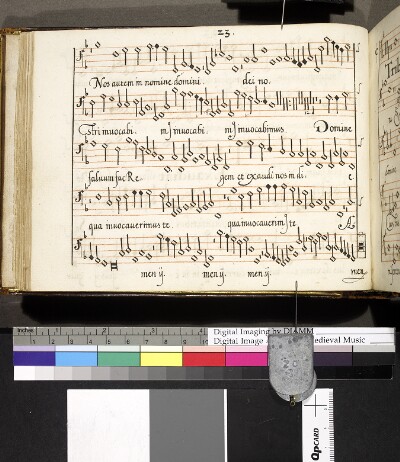 23.
Nos autem in nomine domini. dei no.
stri inuocabi. inuocabi. inuocabimus Domine
saluum fac Re. gem et exaudi nos in di. e.
qua inuocauerimus te qua inuocauerim9 te A
men ij. men ij. men ij. men
inches 1 2 3 4 5 6
Digital Imaging by DIAMM
Digital Image Medieval Music
QPCARD